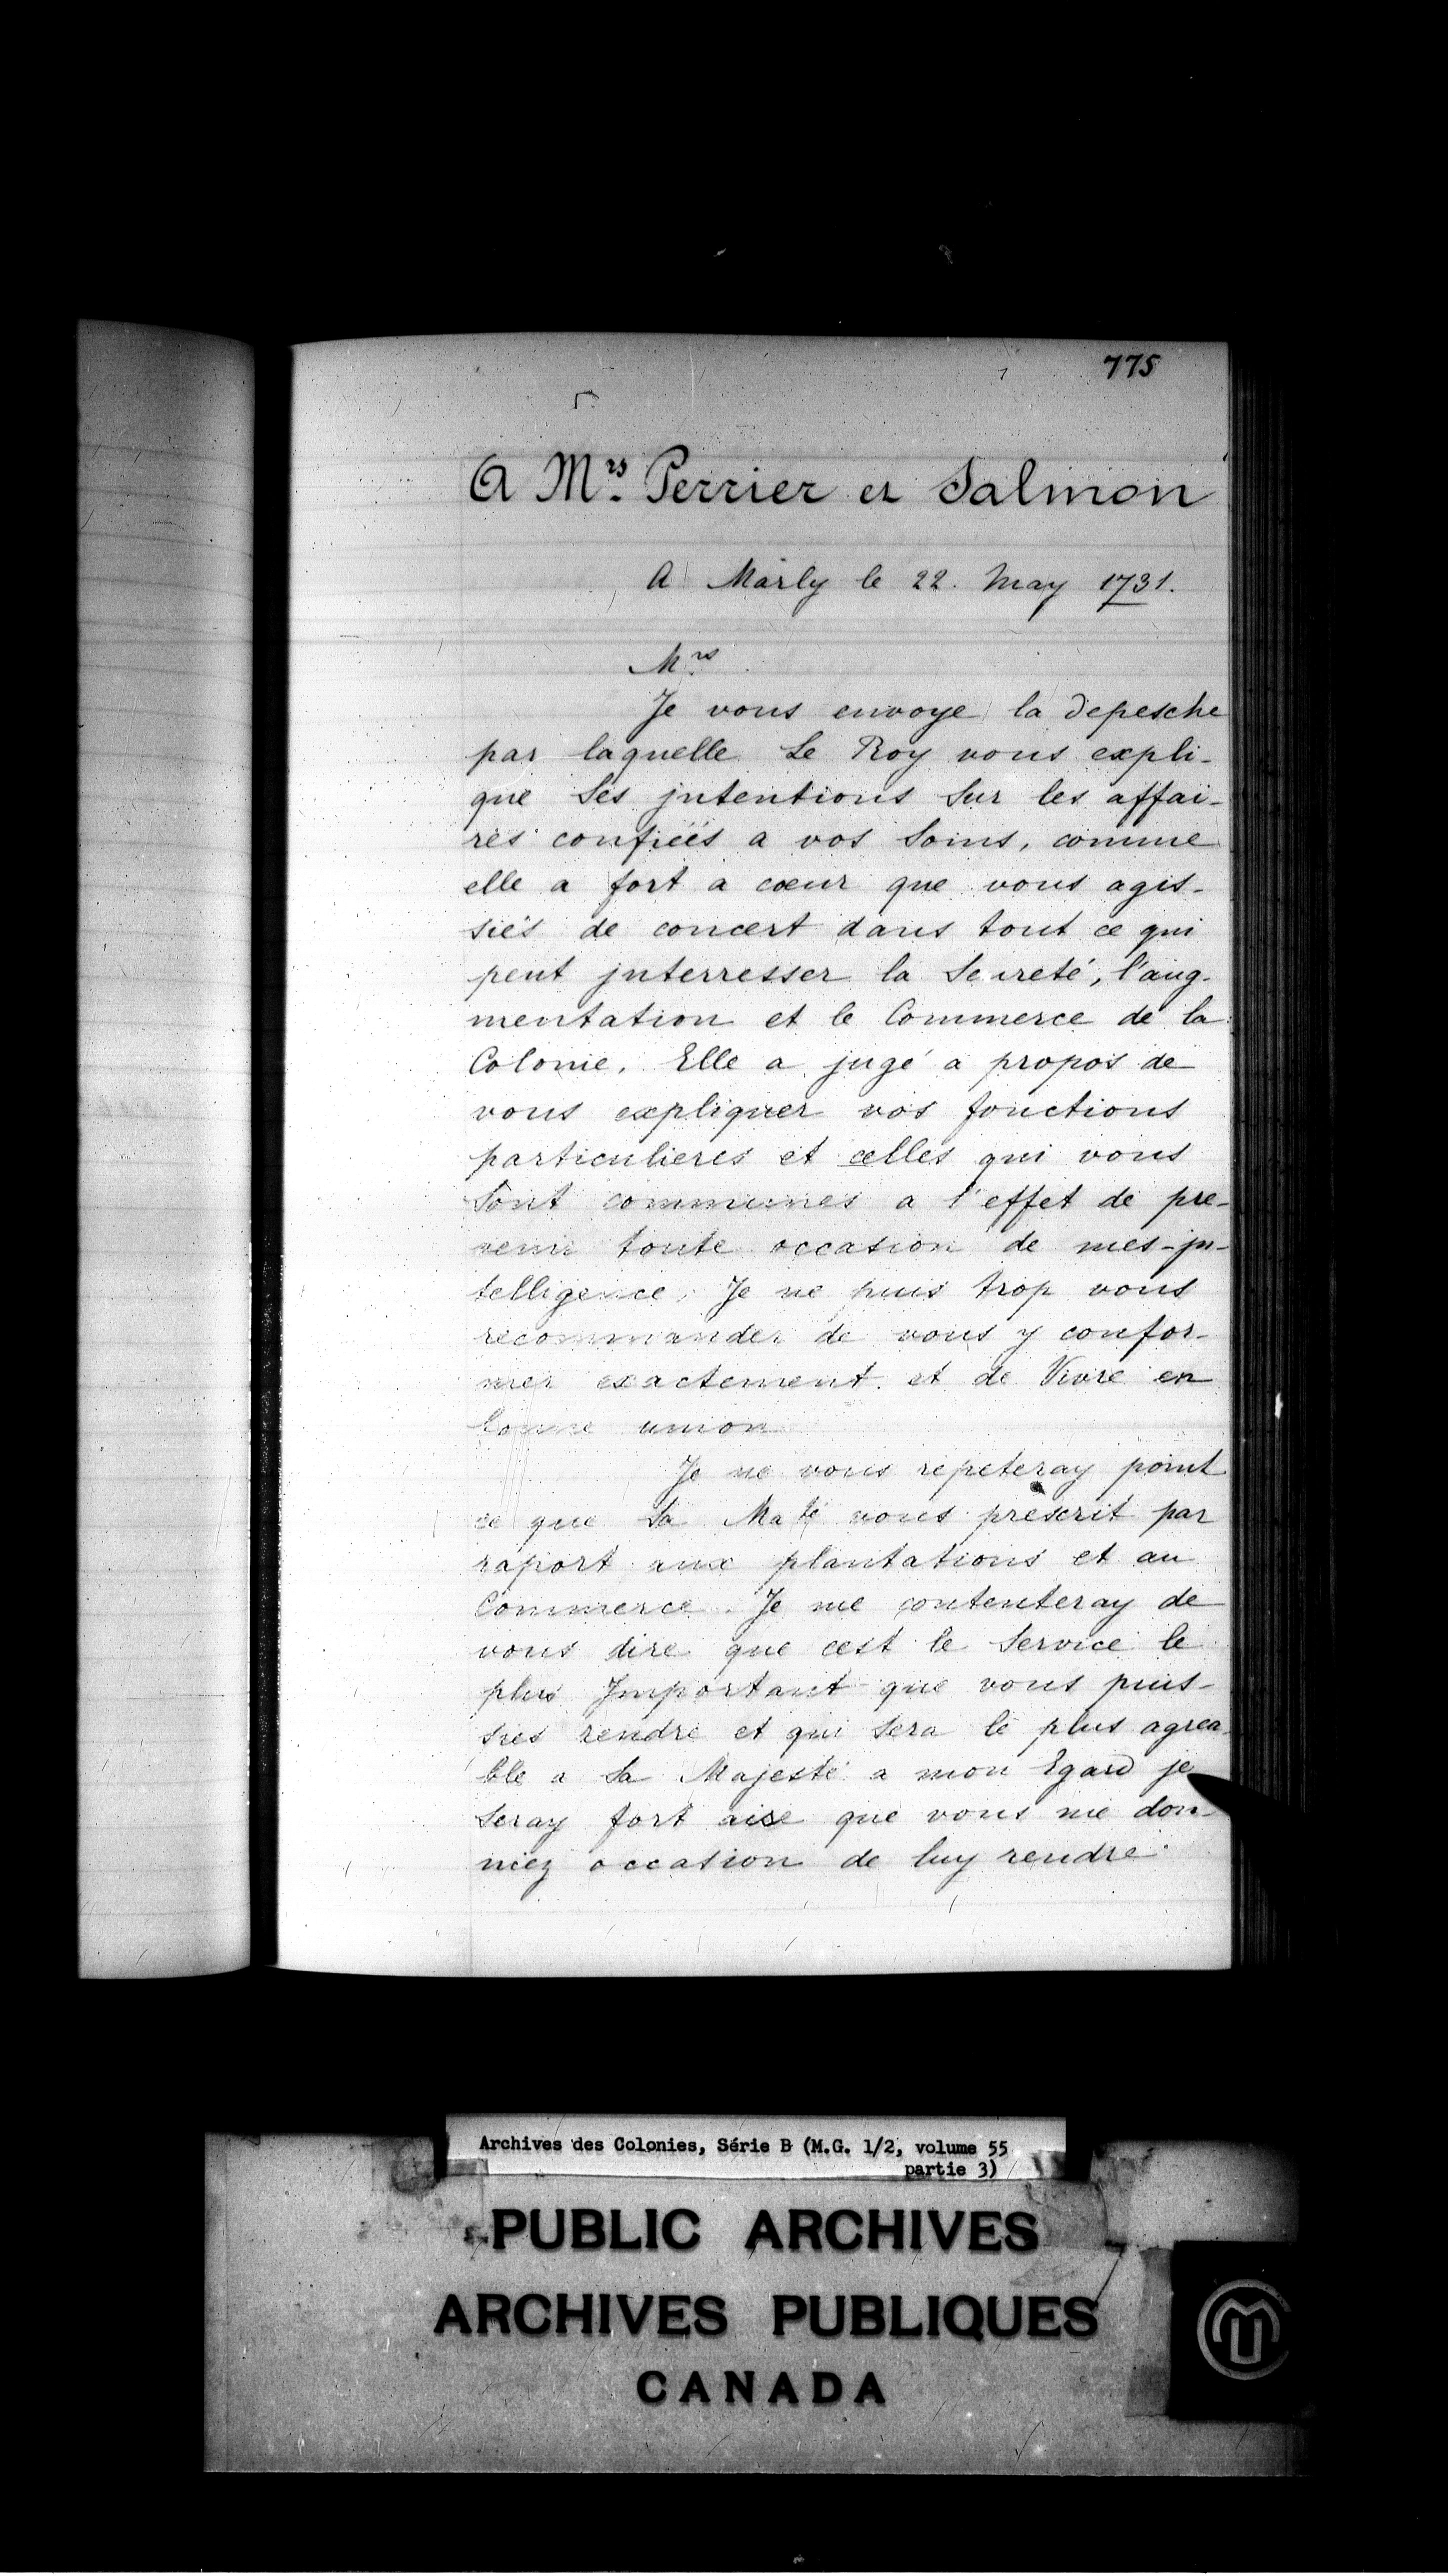 775
A Mrs Perrier et Salmon
A Marly le 22. May 1731.
Mrs
Je vous envoye la depesche
par laquelle Le Roy vous expli-
que Ses jntentions Sur les affai-
res confieés a vos Soins, comme
elle a fort a cœur que vous agis-
siés de concert dans tout ce qui
peut jnterresser la Seureté, l'aug-
mentation et le Commerce de la
Colonie. Elle a jugé a propos de
vous expliquer vos fonctions
particulieres et celles qui vous
Sont communes a l'effet de pre-
venir toute occation de mes-jn-
telligence, Je ne puis trop vous
recommander de vous y confor-
mer exactement. et de Vivre en
bonne union
Je ne vous repeteray point
ce que Sa Maté vous prescrit par
raport aux plantations et au
Commerce. Je me contenteray de
vous dire que cest le Service le
plus Jmportant que vous puis-
siés rendre et qui Sera le plus agrea-
ble a Sa Majesté a mon Egard je
Seray fort aise que vous me don-
niez occation de luy rendre
Archives des Colonies, Série B (M.G. 1/2, volume 55
partie 3)
PUBLIC ARCHIVES
ARCHIVES PUBLIQUES
CANADA